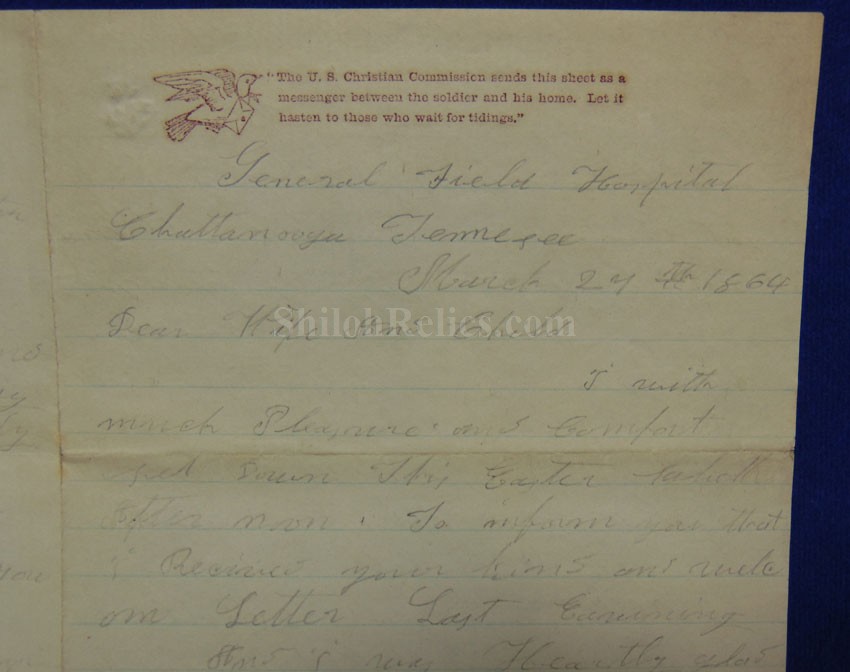 "The U. S. Christian Commission sends this sheet as a
messenger between the soldier and his home. Let it
hasten to those who wait for tidings."
General Field Hospital
Chattanooga Tennesee
March 27 th 1864
Dear Wife And Child
ShilohRelics.com
I with
much Pleasure and Comfort
set Down This Easter
After noon To inform you that
i Received your kind and welc
om Letter Last Eavining
And i was Heartly glad
you